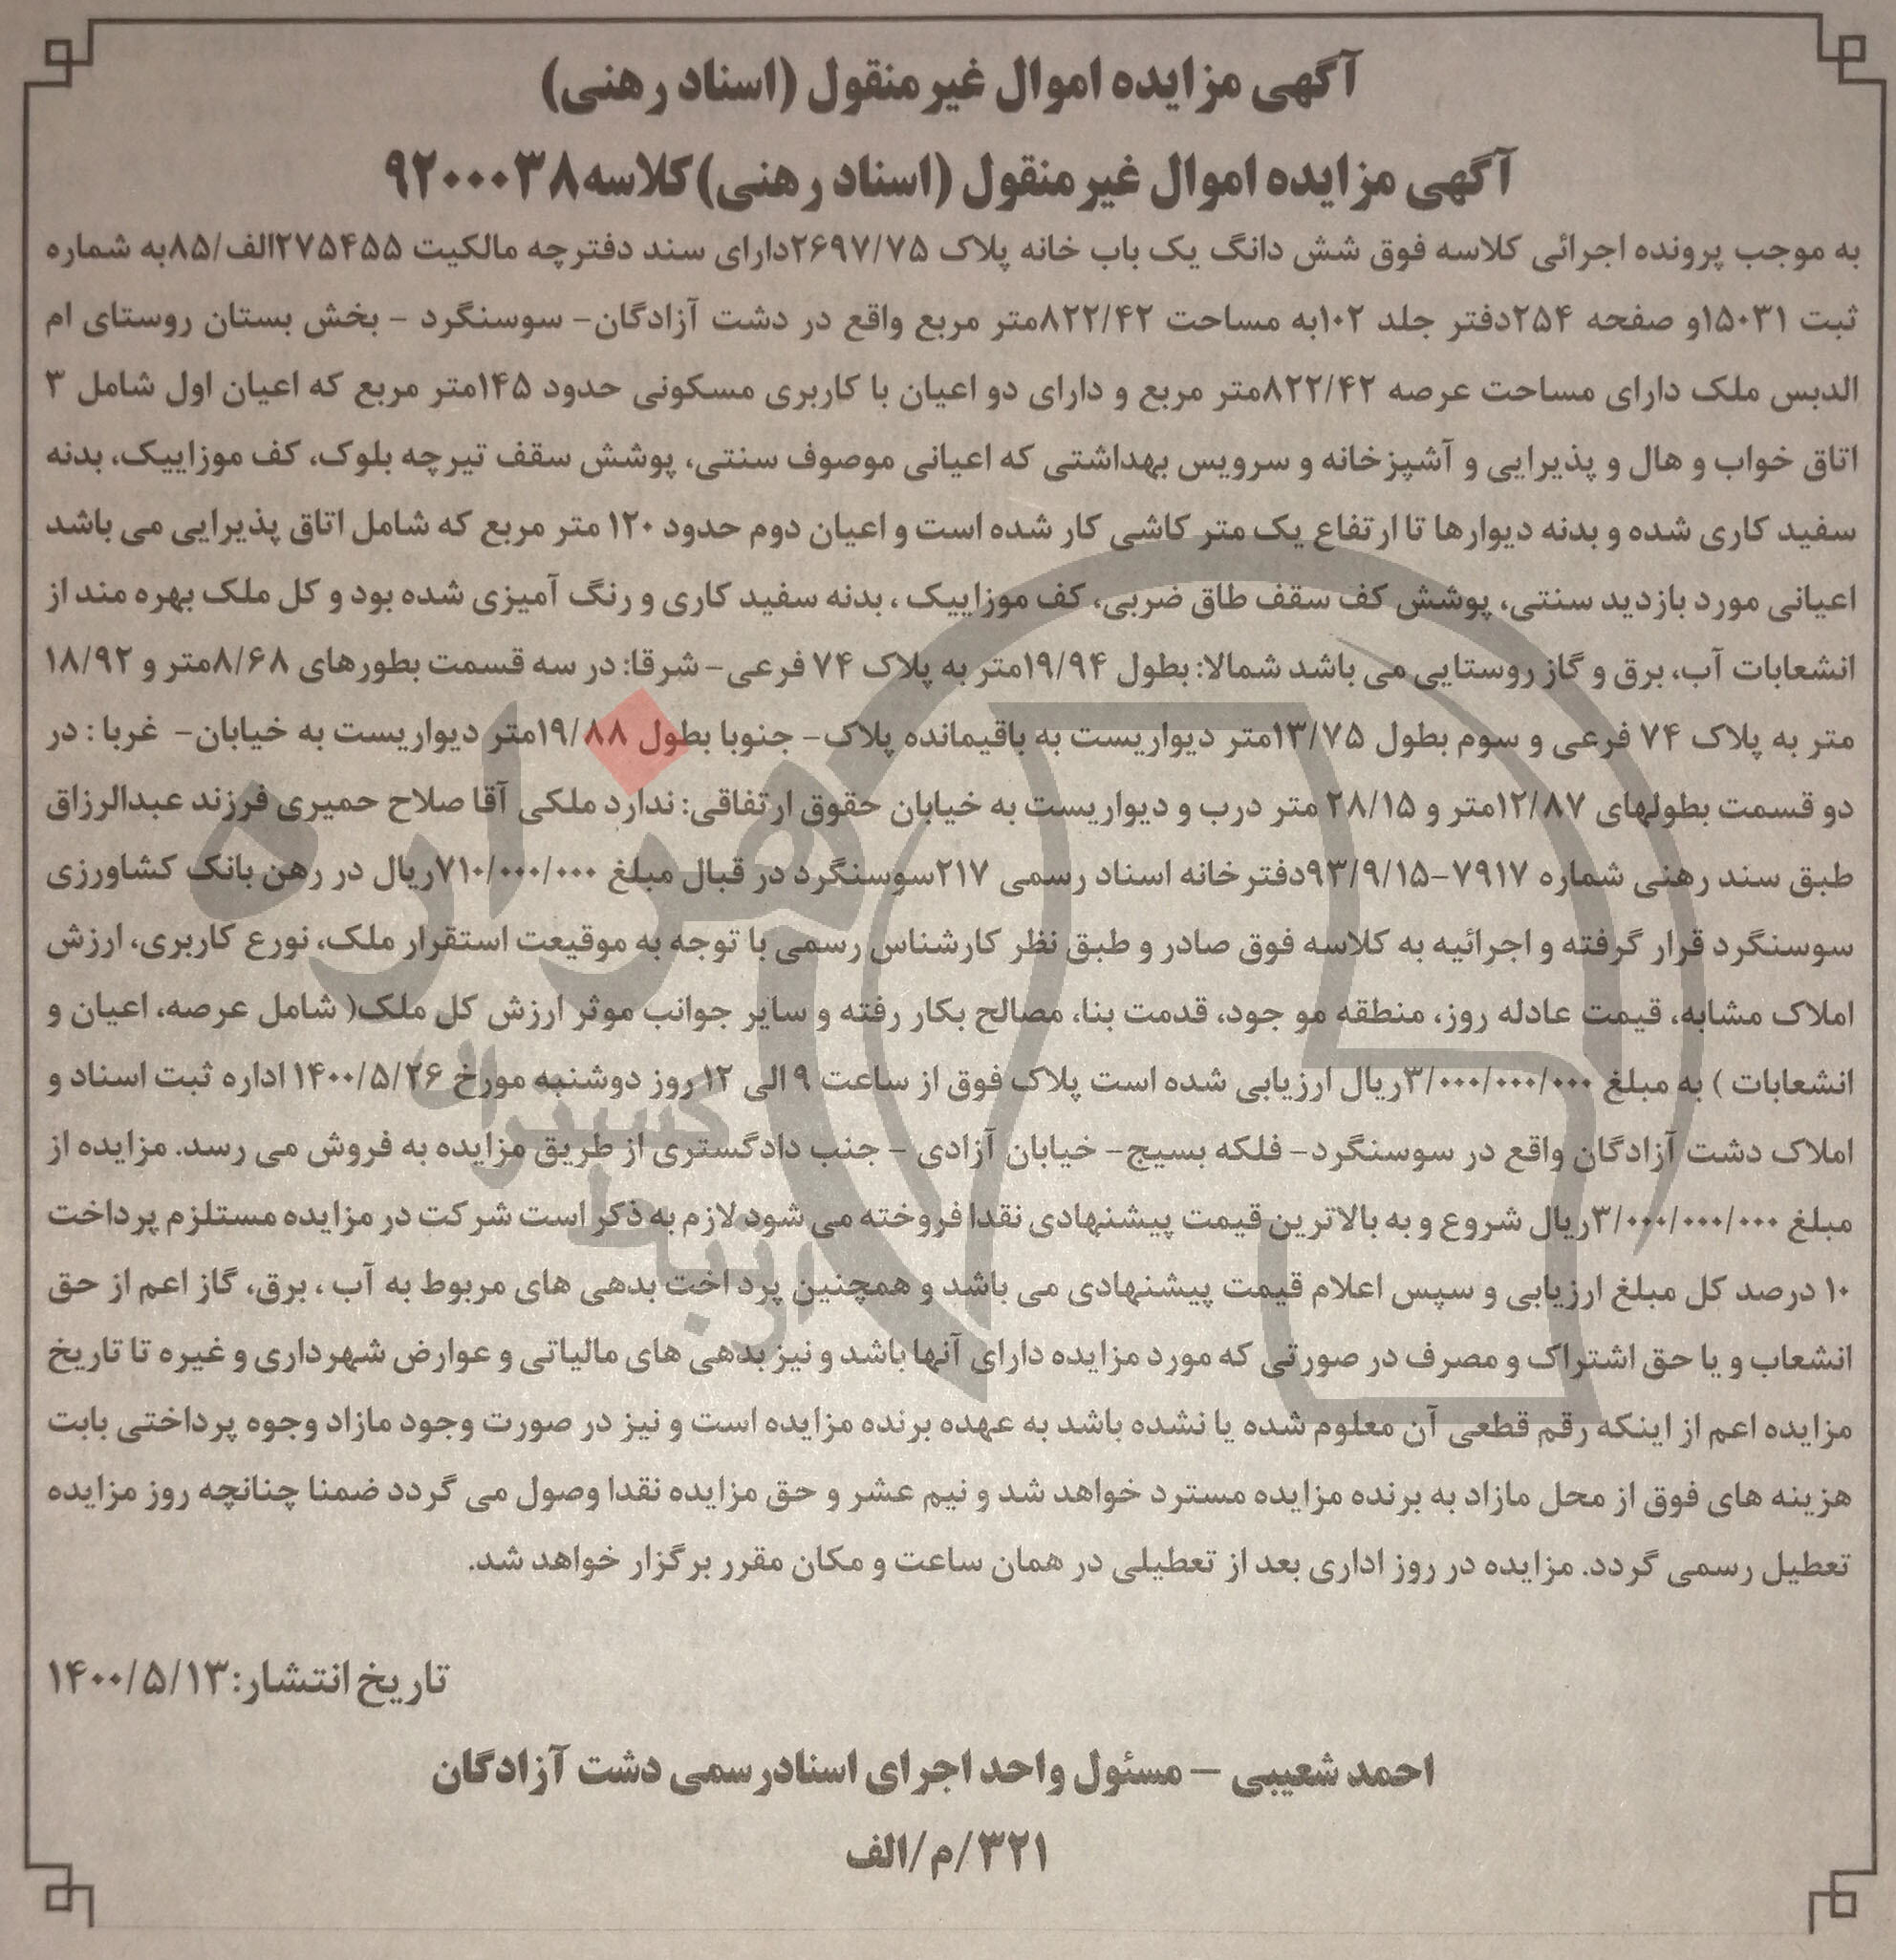 آگهی مزایده اموال غیر منقول (اسناد رهنی)
آگهی مزایده اموال غیر منقول (اسناد رهنی)کلاسه۹۲۰۰۰۳۸
به موجب پرونده اجرائی کلاسه فوق شش دانگ یک باب خانه پلاک ۲۶۹۷/۷۵دارای سند دفترچه مالکیت ۲۷۵۴۵۵الف/۸۵به شماره
ثبت ۱۵۰۳۱و صفحه ۲۵۴دفتر جلد ۱۰۲به مساحت ۸۲۲/۴۲متر مربع واقع در دشت آزادگان- سوسنگرد - بخش بستان روستای ام
الدبس ملک دارای مساحت عرصه ۸۲۲/۴۲متر مربع و دارای دو اعیان با کاربری مسکونی حدود ۱۴۵متر مربع که اعیان اول شامل ۳
اتاق خواب و هال و پذیرایی و آشپزخانه و سرویس بهداشتی که اعیانی موصوف سنتی، پوشش سقف تیرچه بلوک، کف موزاییک، بدنه
سفید کاری شده و بدنه دیوارها تا ارتفاع یک متر کاشی کار شده است و اعیان دوم حدود ۱۲۰ متر مربع که شامل اتاق پذیرایی می باشد
اعیانی مورد بازدید سنتی، پوشش کف سقف طاق ضربی، کف موزاییک ، بدنه سفید کاری و رنگ آمیزی شده بود و کل ملک بهره مند از
انشعابات آب، برق و گاز روستایی می باشد شمالا: بطول ۱۹/۹۴متر به پلاک ۷۴ فرعی- شرقا: در سه قسمت بطورهای ۸/۶۸متر و ۱۸/۹۲
متر به پلاک ۷۴ فرعی و سوم بطول ۱۳/۷۵متر دیواریست به باقیمانده پلاک- جنوبا بطول ۱۹/۸۸متر دیواریست به خیابان- غربا : در
دو قسمت بطولهای ۱۲/۸۷متر و ۲۸/۱۵ متر درب و دیواریست به خیابان حقوق ارتفاقی: ندارد ملکی آقا صلاح حمیری فرزند عبدالرزاق
طبق سند رهنی شماره ۷۹۱۷-۹۳/۹/۱۵دفترخانه اسناد رسمی ۲۱۷سوسنگرد در قبال مبلغ ۷۱۰/۰۰۰/۰۰۰ریال در رهن بانک کشاورزی
سوسنگرد قرار گرفته و اجرائیه به کلاسه فوق صادر و طبق نظر کارشناس رسمی با توجه به موقیعت استقرار ملک، نورع کاربری، ارزش
املاک مشابه، قیمت عادله روز، منطقه مو جود، قدمت بنا، مصالح بکار رفته و سایر جوانب موثر ارزش کل ملک( شامل عرصه، اعیان و
انشعابات ) به مبلغ ۳/۰۰۰/۰۰۰/۰۰۰ریال ارزیابی شده است پلاک فوق از ساعت ۹ الی ۱۲ روز دوشنبه مورخ ۱۴۰۰/۵/۲۶ اداره ثبت اسناد و
املاک دشت آزادگان واقع در سوسنگرد- فلکه بسیج- خیابان آزادی - جنب دادگستری از طریق مزایده به فروش می رسد. مزایده از
مبلغ ۳/۰۰۰/۰۰۰/۰۰۰ریال شروع و به بالاترین قیمت پیشنهادی نقدا فروخته می شود لازم به ذکر است شرکت در مزایده مستلزم پرداخت
۱۰ درصد کل مبلغ ارزیابی و سپس اعلام قیمت پیشنهادی می باشد و همچنین پرداخت بدهی های مربوط به آب ، برق، گاز اعم از حق
انشعاب و یا حق اشتراک و مصرف در صورتی که مورد مزایده دارای آنها باشد و نیز بدهی های مالیاتی و عوارض شهرداری و غیره تا تاریخ
مزایده اعم از اینکه رقم قطعی آن معلوم شده یا نشده باشد به عهده برنده مزایده است و نیز در صورت وجود مازاد وجوه پرداختی بابت
هزینه های فوق از محل مازاد به برنده مزایده مسترد خواهد شد و نیم عشر و حق مزایده نقدا وصول می گردد ضمنا چنانچه روز مزایده
تعطیل رسمی گردد. مزایده در روز اداری بعد از تعطیلی در همان ساعت و مکان مقرر برگزار خواهد شد.
تاریخ انتشار:۱۴۰۰/۵/۱۳
احمد شعیبی - مسئول واحد اجرای اسنادرسمی دشت آزادگان
۳۲۱/م/الف